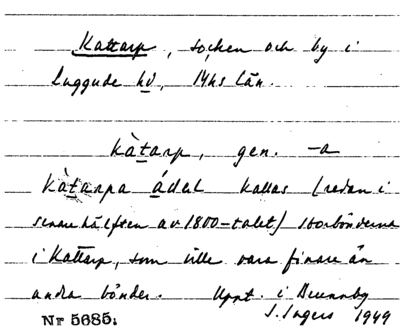 Kattarp, socken och by i
Luggude hd, Mhs län.
kàtarp, gen. -a
kàtarpa ádel kallas (redan i
senare hälften av 1800-talet) storbönderna
i Kattarp, som ville vara finare än
andra bönder. Uppt. i Brunnby
Nr 5685. I. Ingers 1949